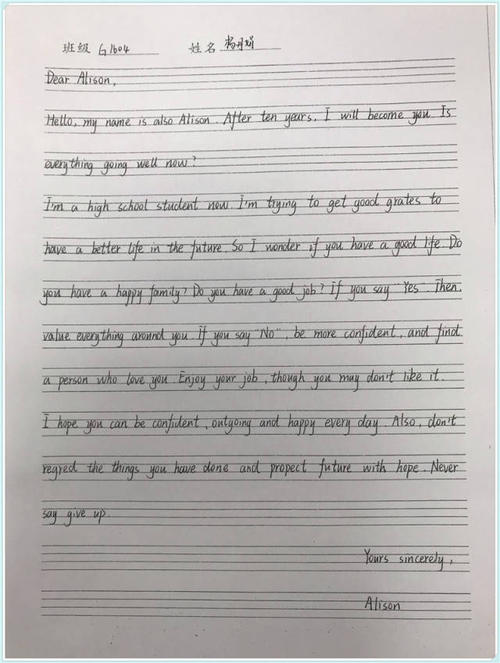 班级 G1604 姓名
Dear Alison,
Hello, my name is also Alison. After ten years, I will become you. Is
everything going well now?
I'm a high school student now. I'm trying to get good grates to
have a better life in the future. So I wonder if you have a good life. Do
you have a happy family? Do you have a good job? If you say "Yes". Then,
value everything around you. If you say "No", be more confident, and find
a person who love you. Enjoy your job, though you may don't like it.
I hope you can be confident, outgoing and happy every day. Also, don't
regred the things you have done and propect future with hope. Never
say give up.
Yours sincerely,
Alison